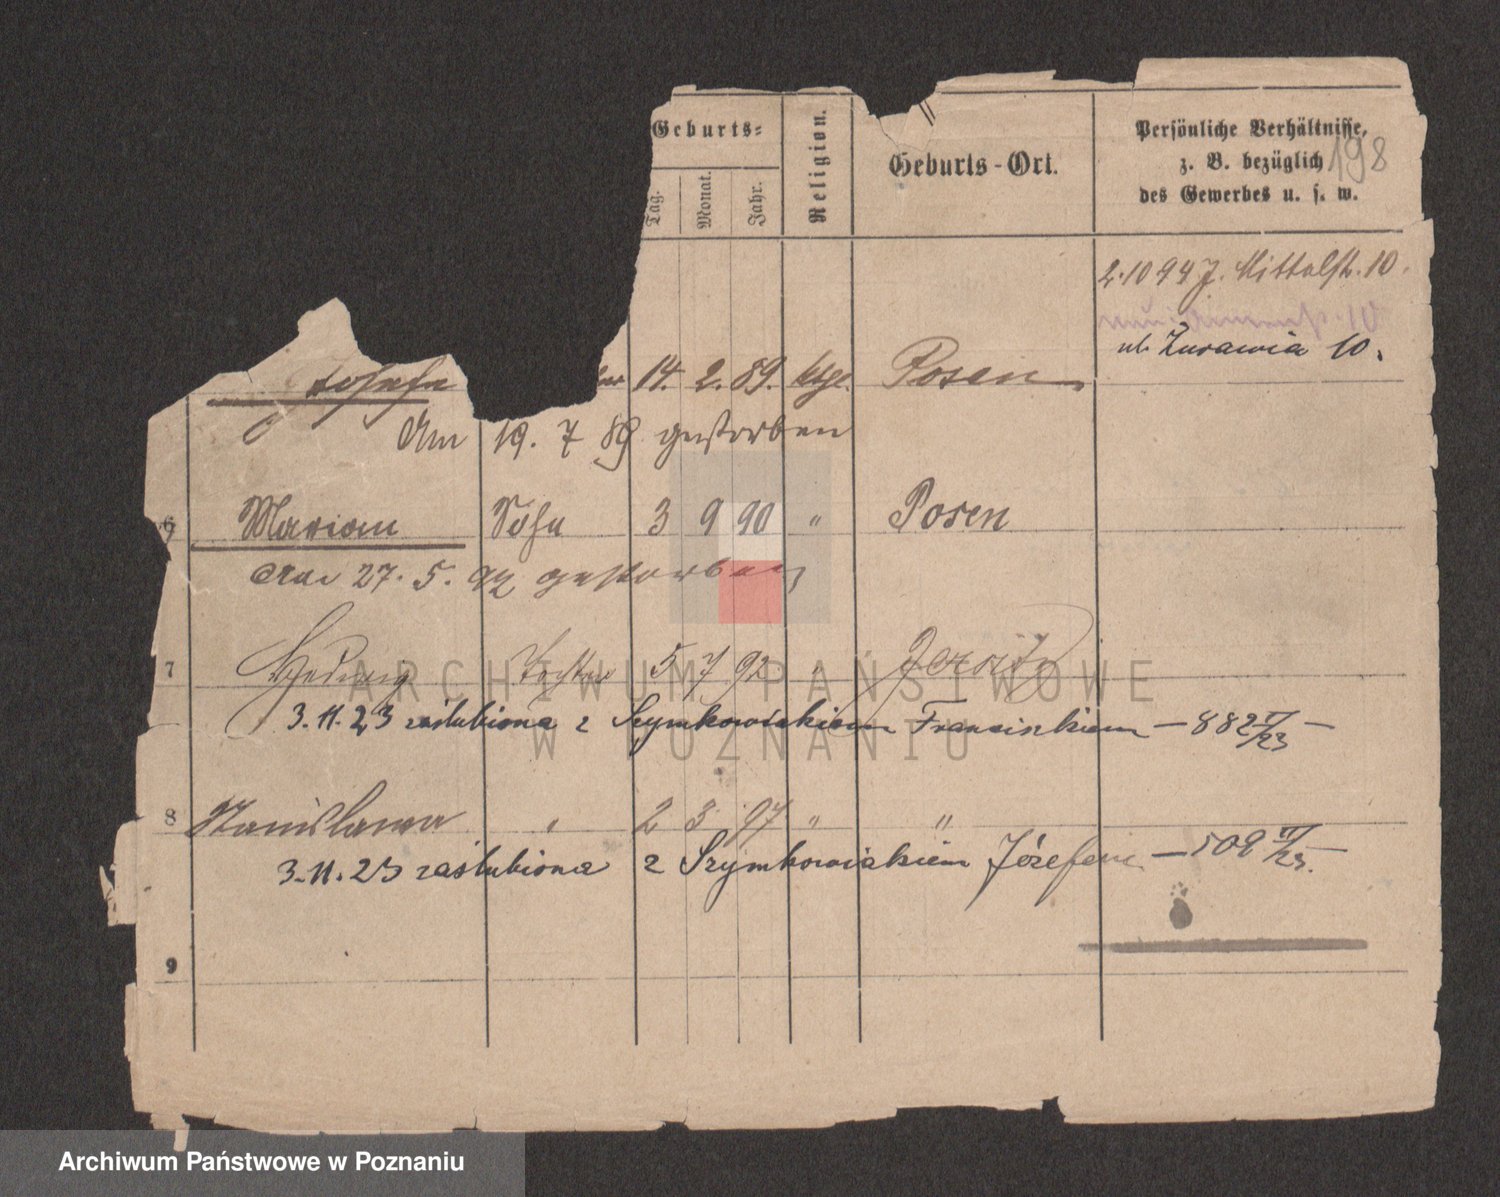 Geburts-
Tag. Monat. Jahr.
Religion.
Geburts-Ort.
Persönliche Verhältnisse,
z. B. bezüglich
des Gewerbes u. s. w.
198
2.10 94 J. Mittelstr. 10.
10
ul. Żurawia 10.
Josefa 14. 2. 89. ktge. Posen
Am 19. 7 89 gestorben
6 Marian Sohn 3 9 90 " Posen
Am 27. 5. 92 gestorben
7 Hedwig Tochter 5 7 92 " Jersitz
3.11.23 zaślubiona z Szymkowiakiem Franciszkiem — 882 II/23 —
8 Stanislawa " 2 3 97 " "
3.11.23 zaślubiona z Szymkowiakiem Józefem — 509 II/23. —
9
ARCHIWUM PAŃSTWOWE
W POZNANIU
Archiwum Państwowe w Poznaniu